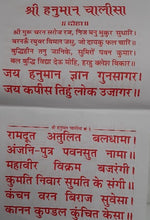 श्री हनुमान चालीसा
॥ दोहा ॥
श्री गुरू चरन सरोज रज, निज मनु मुकुर सुधारि।
बरनऊँ रघुबर बिमल जसु, जो दायकु फल चारि॥
बुद्धिहीन तनु जानिके, सुमिरौं पवन कुमार।
बल बुद्धि विद्या देहु मोहि, हरहु कलेश विकार॥
जय हनुमान ज्ञान गुनसागर।
जय कपीस तिहुं लोक उजागर॥
रामदूत अतुलित बलधामा।
अंजनि-पुत्र पवनसुत नामा॥
महावीर विक्रम बजरंगी।
कुमति निवार सुमति के संगी॥
कंचन वरन बिराज सुवेसा।
कानन कुण्डल कुंचित केसा॥